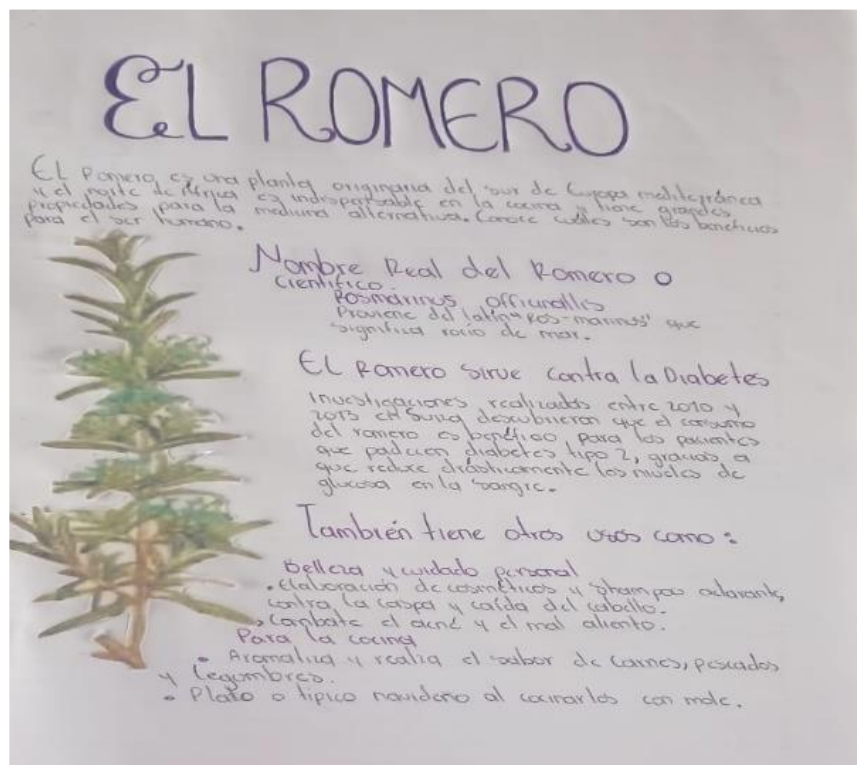 EL ROMERO
EL Romero, es una planta, originaria del sur de Europa mediterránea
y el norte de África es indispensable en la cocina y tiene grandes
propiedades para la medicina alternativa. Conoce cuáles son los beneficios
para el ser humano.
Nombre Real del Romero o
Científico.
Rosmarinus officinallis
Proviene del latín "Ros-marinus" que
significa rocío de mar.
EL Romero sirve contra la Diabetes
Investigaciones realizadas entre 2010 y
2013 en Suiza descubrieron que el consumo
del romero es benéfico, para los pacientes
que padecen diabetes tipo 2, gracias a
que reduce drásticamente los niveles de
glucosa en la sangre.
También tiene otros usos como:
Belleza y cuidado personal
• Elaboración de cosméticos y shampoo aclarante,
contra la caspa y caída del cabello.
• Combate el acné y el mal aliento.
Para la cocina
• Aromatiza y realza el sabor de carnes, pescados
y legumbres.
• Plato o típico navideño al cocinarlos con mole.